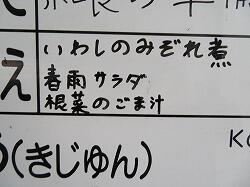 え
いわしのみぞれ煮
春雨サラダ
根菜のごま汁
(きじゅん)